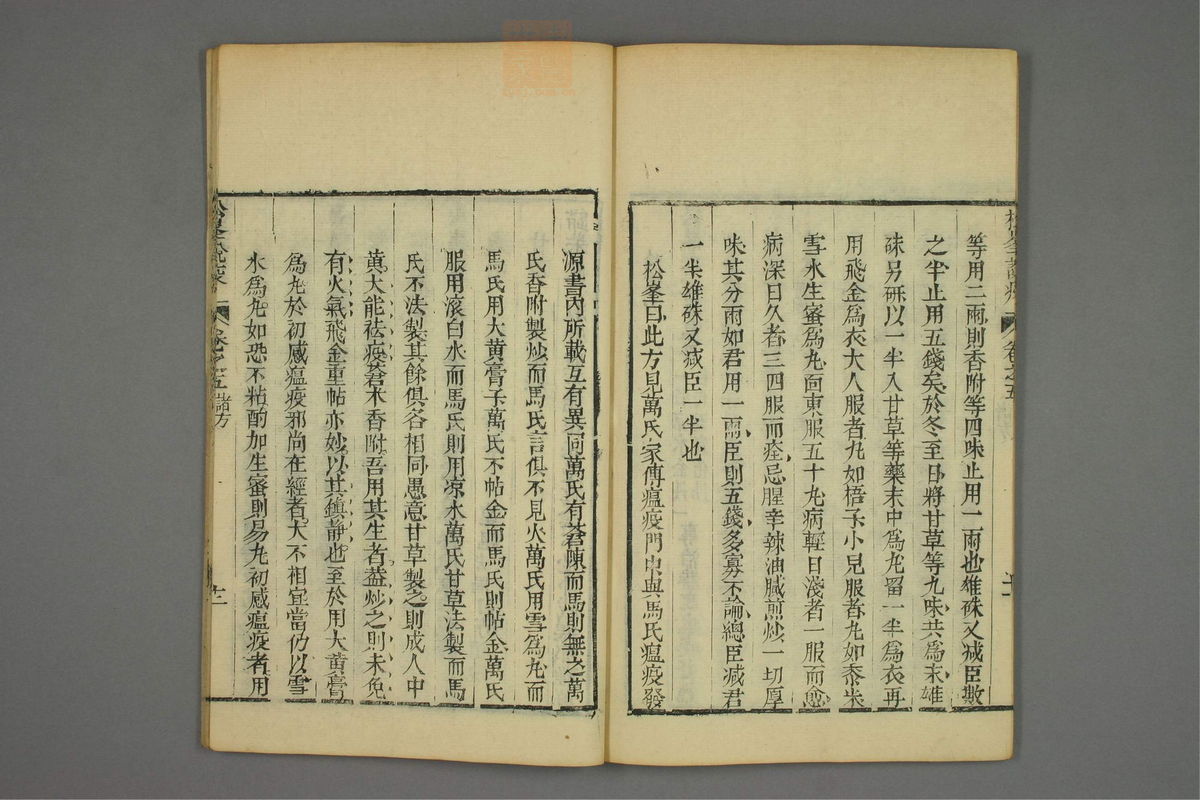 等用二兩則香附等四味止用一兩也雄硃又減臣數
之半止用五錢矣於冬至日將甘草等九味共為末雄
硃另硏以一半入甘草等藥末中為丸留一半為衣再
用飛金為衣大人服者丸如梧子小兒服者丸如黍米
雪水生蜜為丸面東服五十丸病輕日淺者一服而愈
病深日久者三四服而痊忌腥辛辣油膩煎炒一切厚
味其分兩如君用一兩臣則五錢多寡不論總臣減君
一半雄硃又減臣一半也
松峯曰此方見萬氏家傳瘟疫門中與馬氏瘟疫發
源書內所載互有異同萬氏有蒼陳而馬則無之萬
氏香附製炒而馬氏言俱不見火萬氏用雪為丸而
馬氏用大黃膏子萬氏不帖金而馬氏則帖金萬氏
服用滾白水而馬氏則用凉水萬氏甘草法製而馬
氏不法製其餘俱各相同愚意甘草製之則成人中
黃大能祛疫蒼朮香附吾用其生者葢炒之則未免
有火氣飛金重帖亦妙以其鎮靜也至於用大黃膏
為丸於初感瘟疫邪尚在經者大不相宜當仍以雪
水為丸如恐不粘酌加生蜜則易丸初感瘟疫者用
卷之五諸方